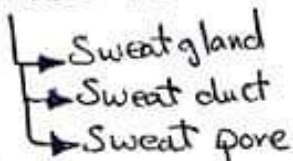 Sweat gland
Sweat duct
Sweat pore